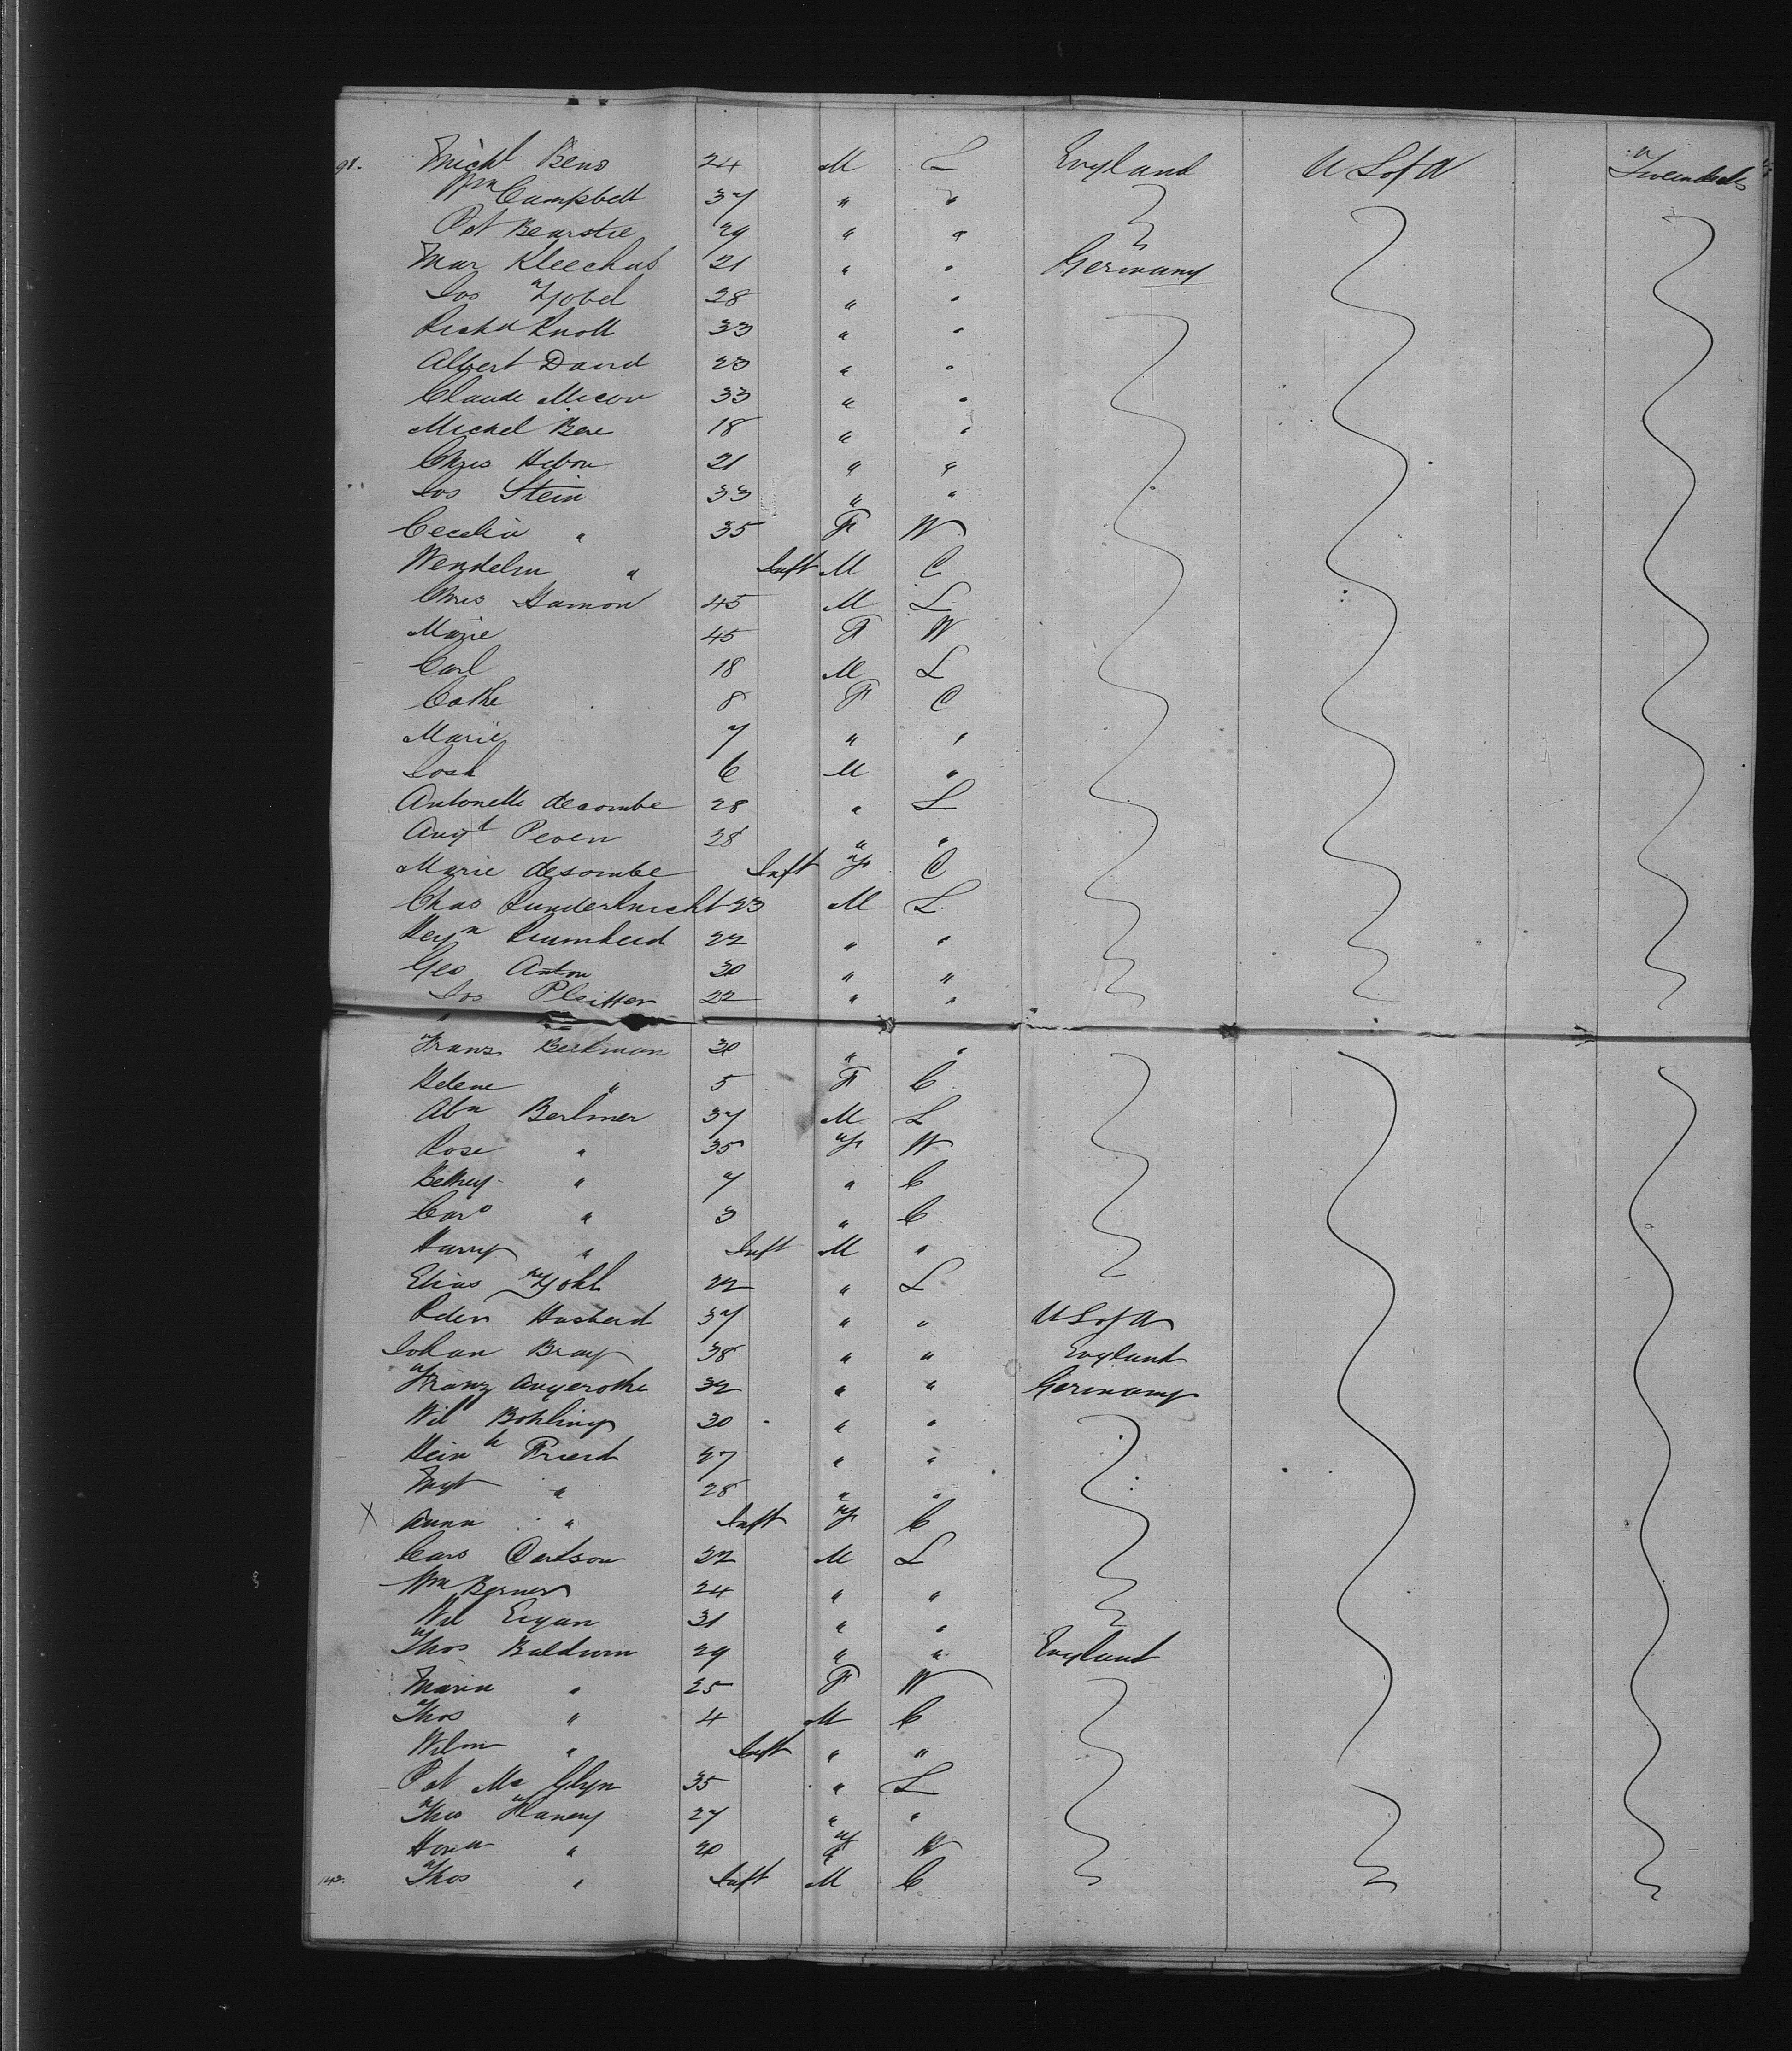 91. Michl Bens 24 M L England U S of A Tweendecks
Wm Campbell 37 " "
Pat Bearstie 29 " "
Mar Kleechus 21 " " Germany
Jos Zobel 28 " "
Richd Knoll 33 " "
Albert David 23 " "
Claude Micov 33 " "
Michel Bere 18 " "
Chris Hebon 21 " "
Jos Stein 33 " "
Cecelia " 35 F W
Wendelin " Inft M C
Chris Hamon 45 M L
Marie 45 F W
Carl 18 M L
Cathe 8 F C
Marie 7 " "
Josh 6 M "
Antonette decombe 28 " L
Augt Peven 28 " "
Marie desombe Inft F C
Chas Kunderknecht 23 M L
Heyn Krumheid 22 " "
Geo Anton 30 " "
Jos Pleitter 22 " "
Franz Beekman 30 " "
Helene " 5 F C
Abm Berlmer 37 M L
Rose " 35 F W
Bethey " 7 " C
Caro " 3 " C
Harry " Inft M "
Elias Zohl 22 " L
Eden Husherd 37 " " U S of A
Johan Bray 38 " " England
Franz Angerothe 32 " " Germany
Wil Bohling 30 " "
Heinh Frierd 27 " "
Mgt " 28 " "
X Anna " Inft F C
Caro Carlson 22 M L
Wm Berner 24 " "
Wil Eigan 31 " "
Thos Baldwin 29 " " England
Maria " 25 F W
Thos " 4 M C
Wilm " Inft " "
Pat Mc Glyn 35 " L
Thos Flaney 27 " "
Hona " 20 F W
143. Thos " Inft M C